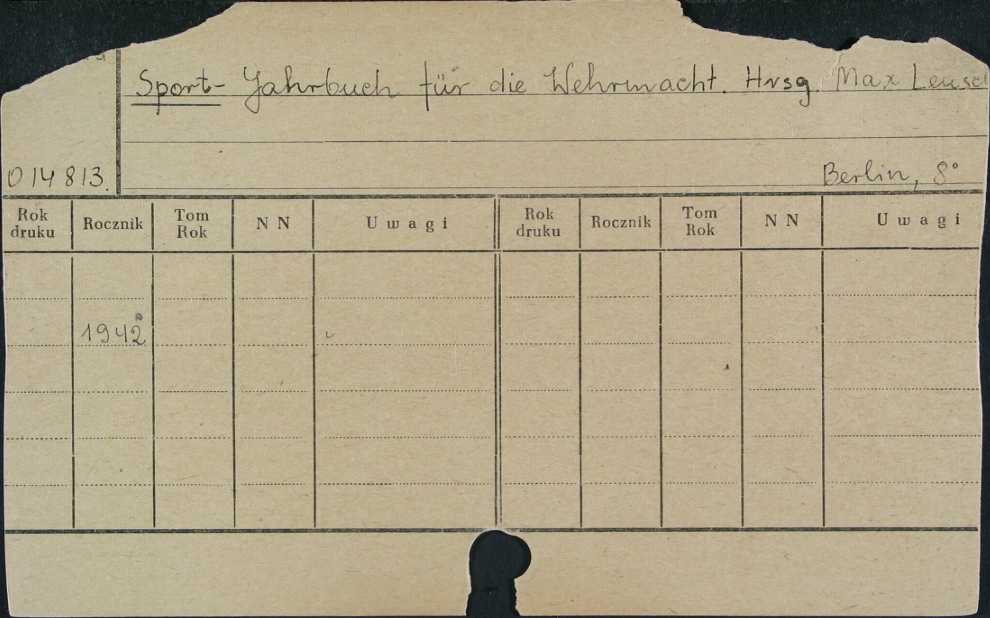 Sport- Jahrbuch für die Wehrmacht. Hrsg. Max
014813.
Berlin, 8°
Rok druku Rocznik Tom Rok NN Uwagi Rok druku Rocznik Tom Rok NN Uwagi
1942